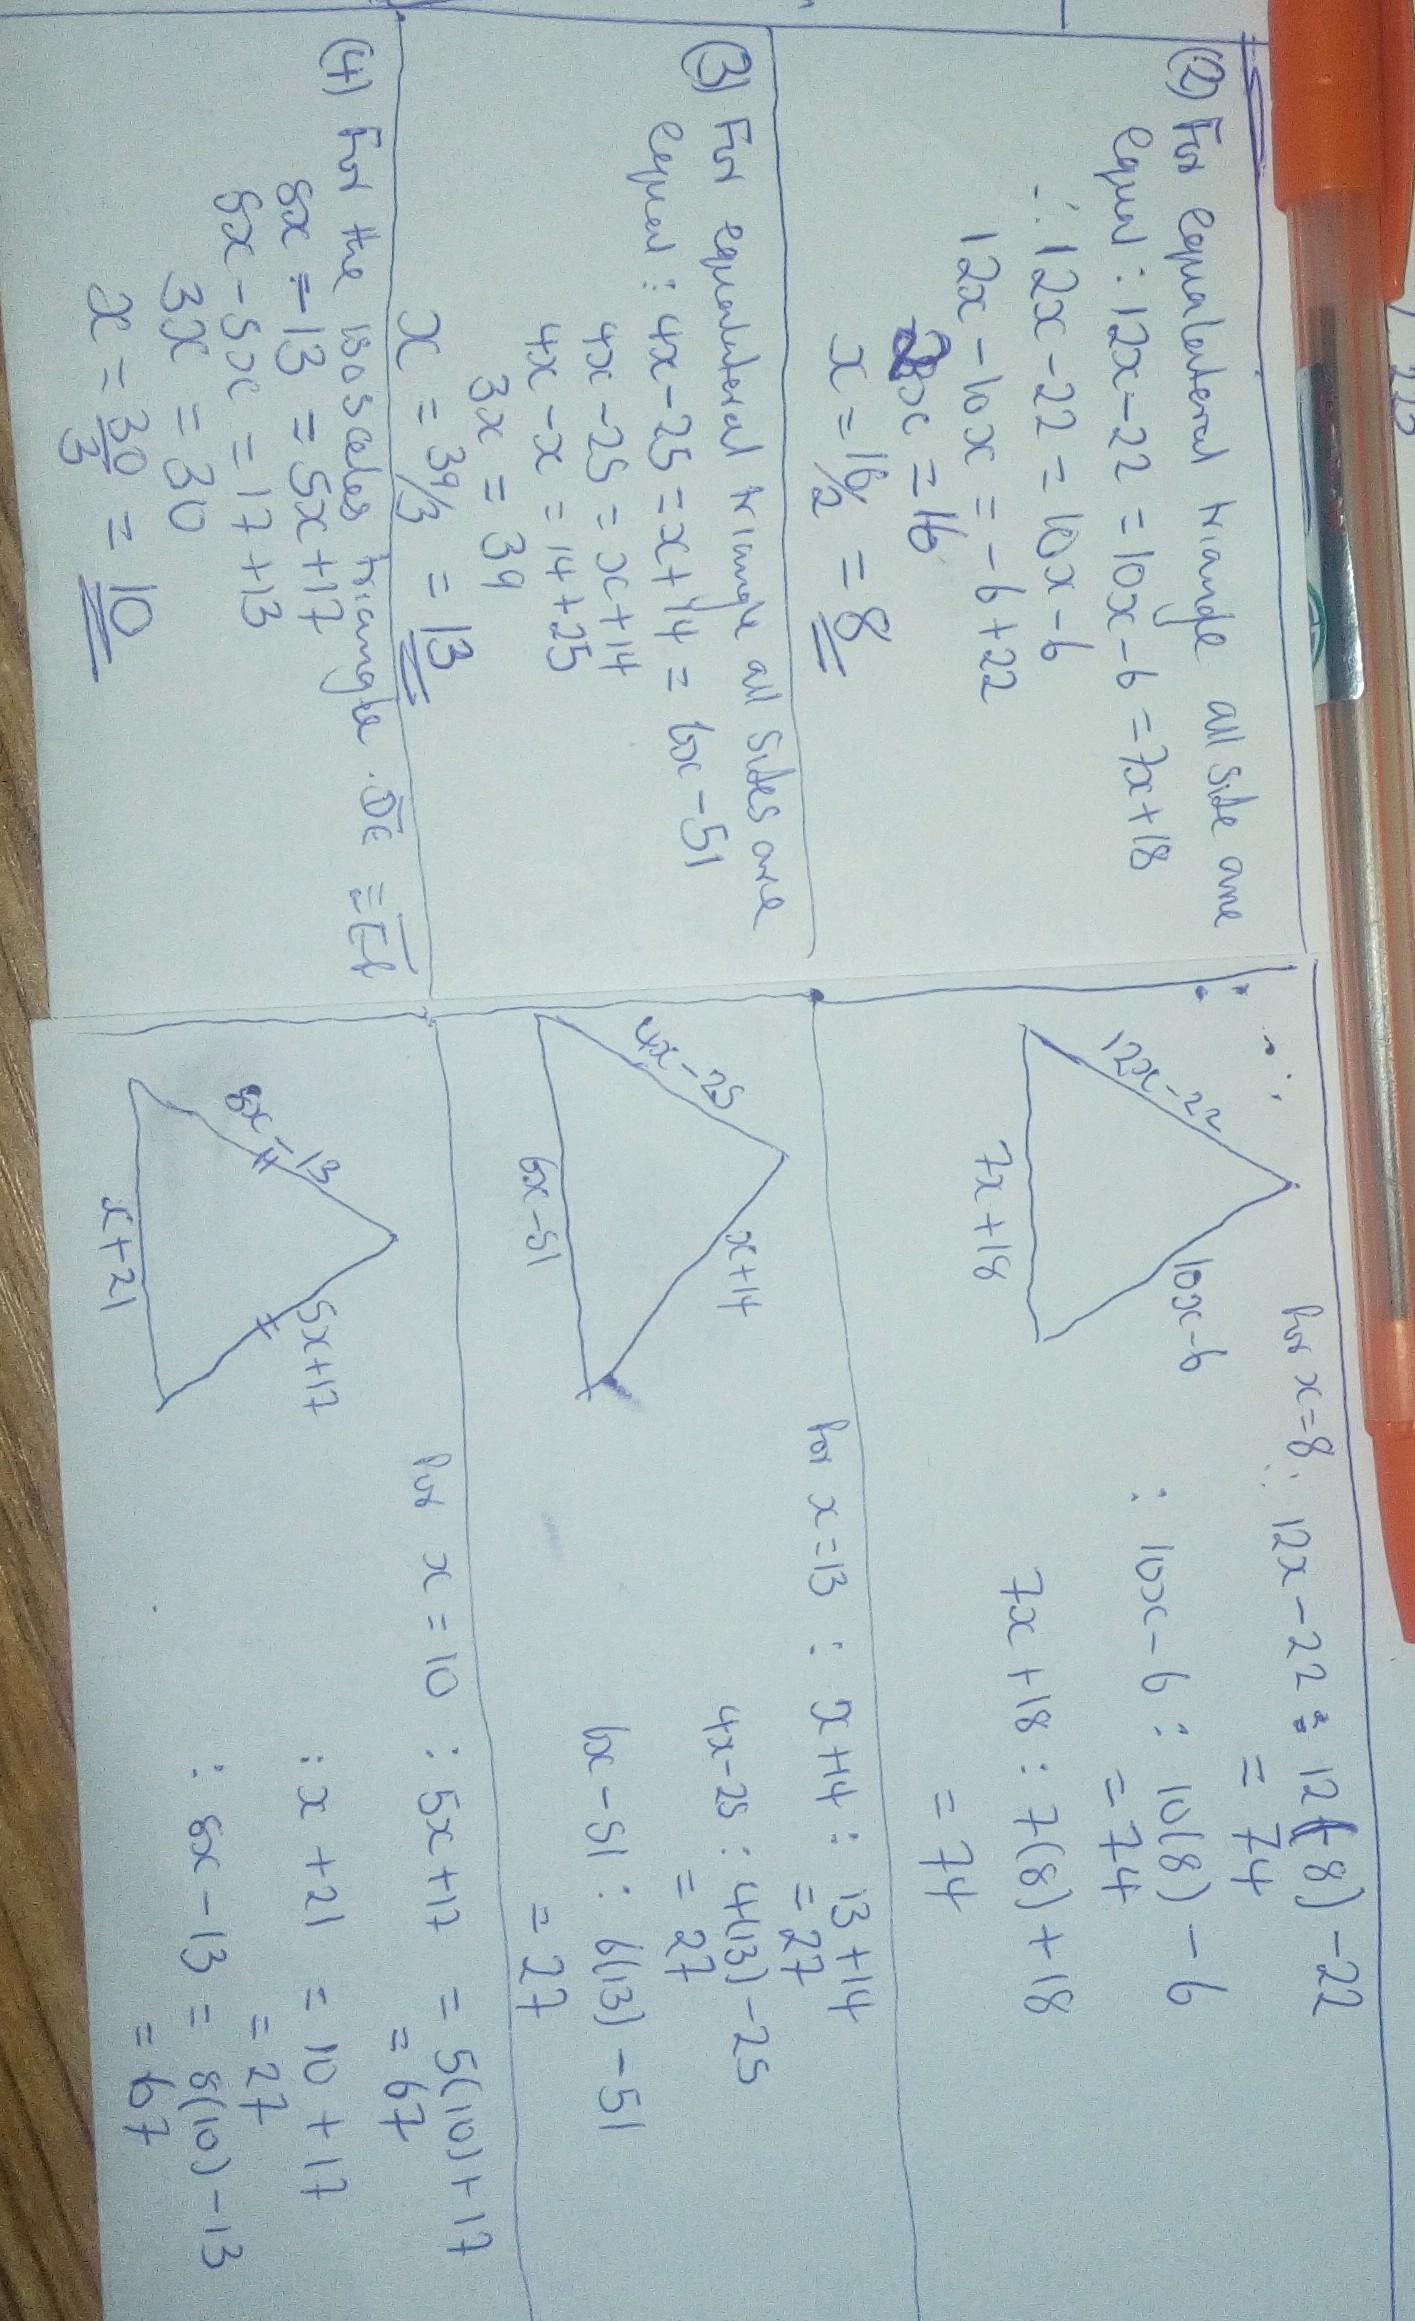 222
(2) For equalateral triangle all side are
equal : 12x-22 = 10x-6 = 7x+18
∴ 12x-22 = 10x-6
12x - 10x = -6+22
2x = 16
x = 16/2 = 8
12x-22
10x-6
7x+18
For x=8: 12x-22 = 12(8)-22
= 74
: 10x-6 : 10(8) - 6
= 74
7x+18 : 7(8)+18
= 74
(3) For equalateral triangle all sides are
equal : 4x-25 = x+14 = 6x-51
4x-25 = x+14
4x-x = 14+25
3x = 39
x = 39/3 = 13
4x-25
x+14
6x-51
For x=13 : x+14 : 13+14
= 27
4x-25 : 4(13)-25
= 27
6x-51 : 6(13)-51
= 27
(4) For the isosceles triangle
8x-13 = 5x+17
8x-5x = 17+13
3x = 30
x = 30/3 = 10
8x-13
5x+17
x+21
For x=10 : 5x+17 = 5(10)+17
= 67
: x+21 = 10+17
= 27
: 8x-13 = 8(10)-13
= 67